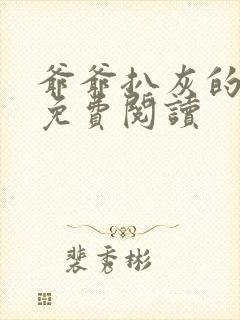 爺爺扒灰的
免費閱讀
裴秀彬